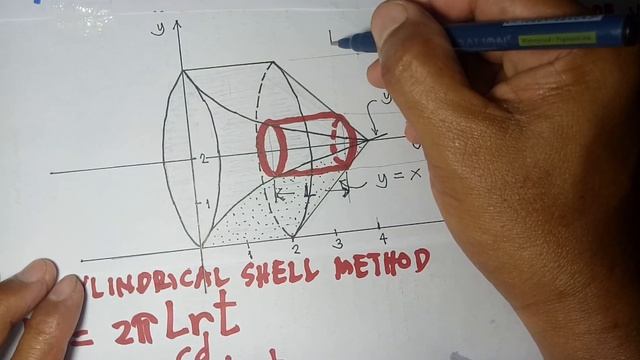 y
L
y
2
L
y = x
1
1 2 3 4
YLINDRICAL SHELL METHOD
= 2π Lrt
cd